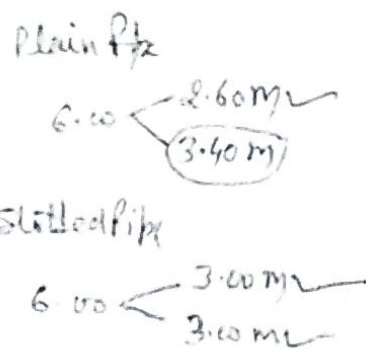 Plain Pipe
6.00 2.60 m
3.40 m
Slotted Pipe
6.00 3.00 m
3.00 m